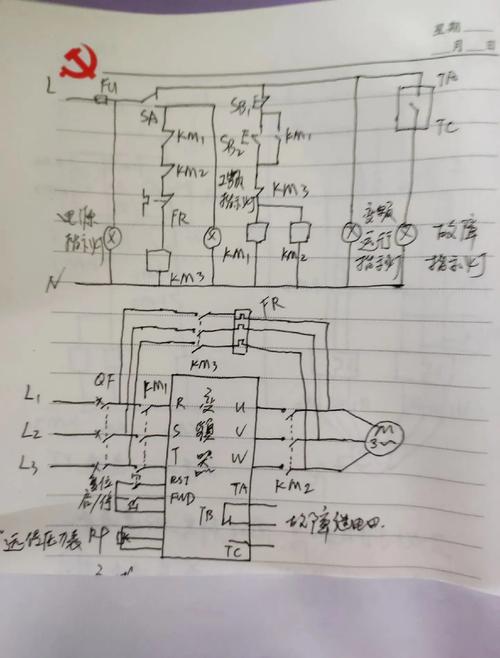 星期
月 日
L FU
SA
KM1
KM2
FR
KM3
电源
指示灯
工频
指示灯
SB1
SB2
KM1
KM3
KM1
KM2
变频
运行
指示灯
TA
TC
故障
指示灯
N
FR
KM3
QF
KM1
L1
L2
L3
R 变 U
S 频 V
T 器 W
KM2
M
3~
复位
启/停
RST
FWD
TA
TB
TC
远传压力表 RP